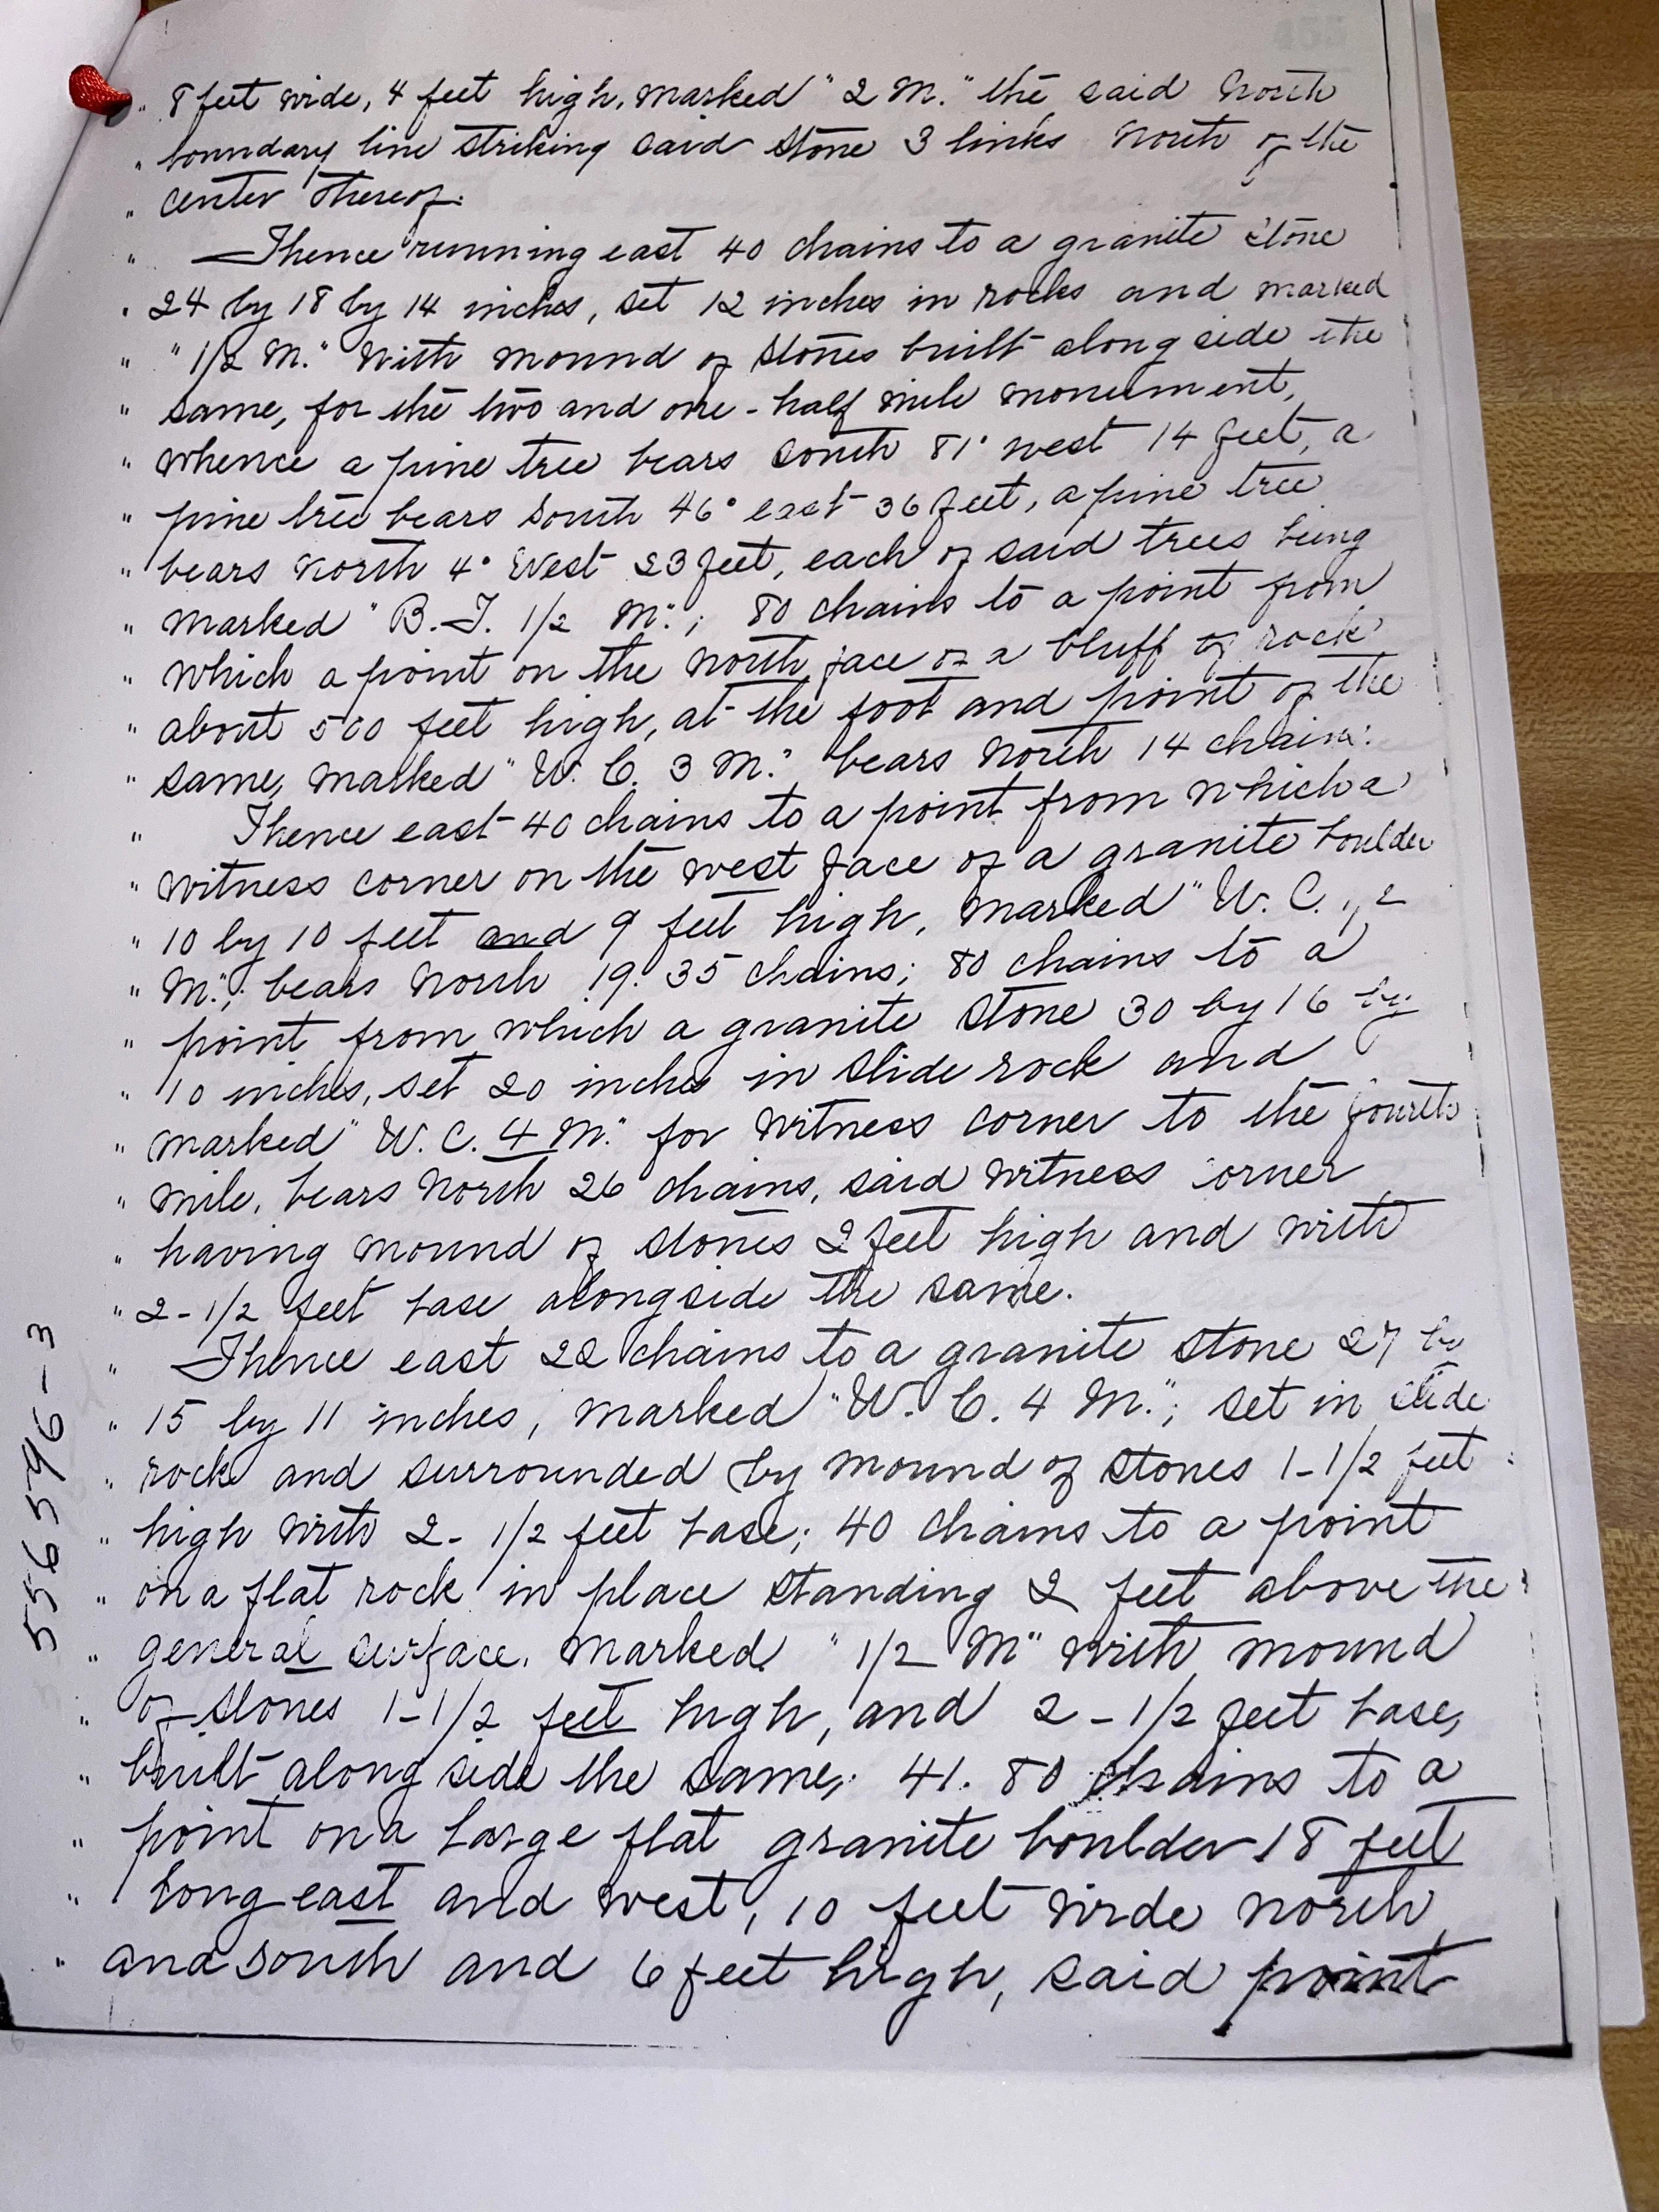 " 8 feet wide, 4 feet high, marked "2 M." the said north
" boundary line striking said stone 3 links north of the
" center thereof.
" Thence running east 40 chains to a granite stone
" 24 by 18 by 14 inches, set 12 inches in rocks and marked
" "1/2 M." With mound of stones built along side the
" same, for the two and one-half mile monument,
" whence a pine tree bears south 81° west 14 feet, a
" pine tree bears south 46° east 36 feet, a pine tree
" bears north 4° West 23 feet, each of said trees being
" marked "B.T. 1/2 M."; 80 chains to a point from
" which a point on the north face of a bluff of rock
" about 500 feet high, at the foot and point of the
" same, marked "W. C. 3 M." bears north 14 chains.
" Thence east 40 chains to a point from which a
" witness corner on the west face of a granite boulder
" 10 by 10 feet and 9 feet high, marked "W. C. 1/2
" M."; bears north 19.35 chains; 80 chains to a
" point from which a granite stone 30 by 16 by
" 10 inches, set 20 inches in slide rock and
" marked "W. C. 4 M." for witness corner to the fourth
" mile, bears north 26 chains, said witness corner
" having mound of stones 2 feet high and with
" 2-1/2 feet base alongside the same.
" Thence east 22 chains to a granite stone 27 by
" 15 by 11 inches, marked "W. C. 4 M."; set in slide
" rock and surrounded by mound of stones 1-1/2 feet
" high with 2-1/2 feet base; 40 chains to a point
" on a flat rock in place standing 2 feet above the
" general surface, marked "1/2 M" with mound
" of stones 1-1/2 feet high, and 2-1/2 feet base,
" built along side the same; 41.80 chains to a
" point on a large flat granite boulder 18 feet
" long east and west, 10 feet wide north
" and south and 6 feet high, said point
556596-3